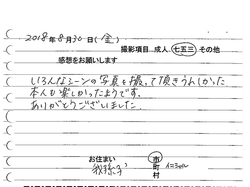 2018年8月30日(金)
撮影項目 成人 七五三 その他
感想をお願いします
いろんなシーンの写真を撮って頂きうれしかった
本人も楽しかったようです。
ありがとうございました。
お住まい 市
我孫子 町
村